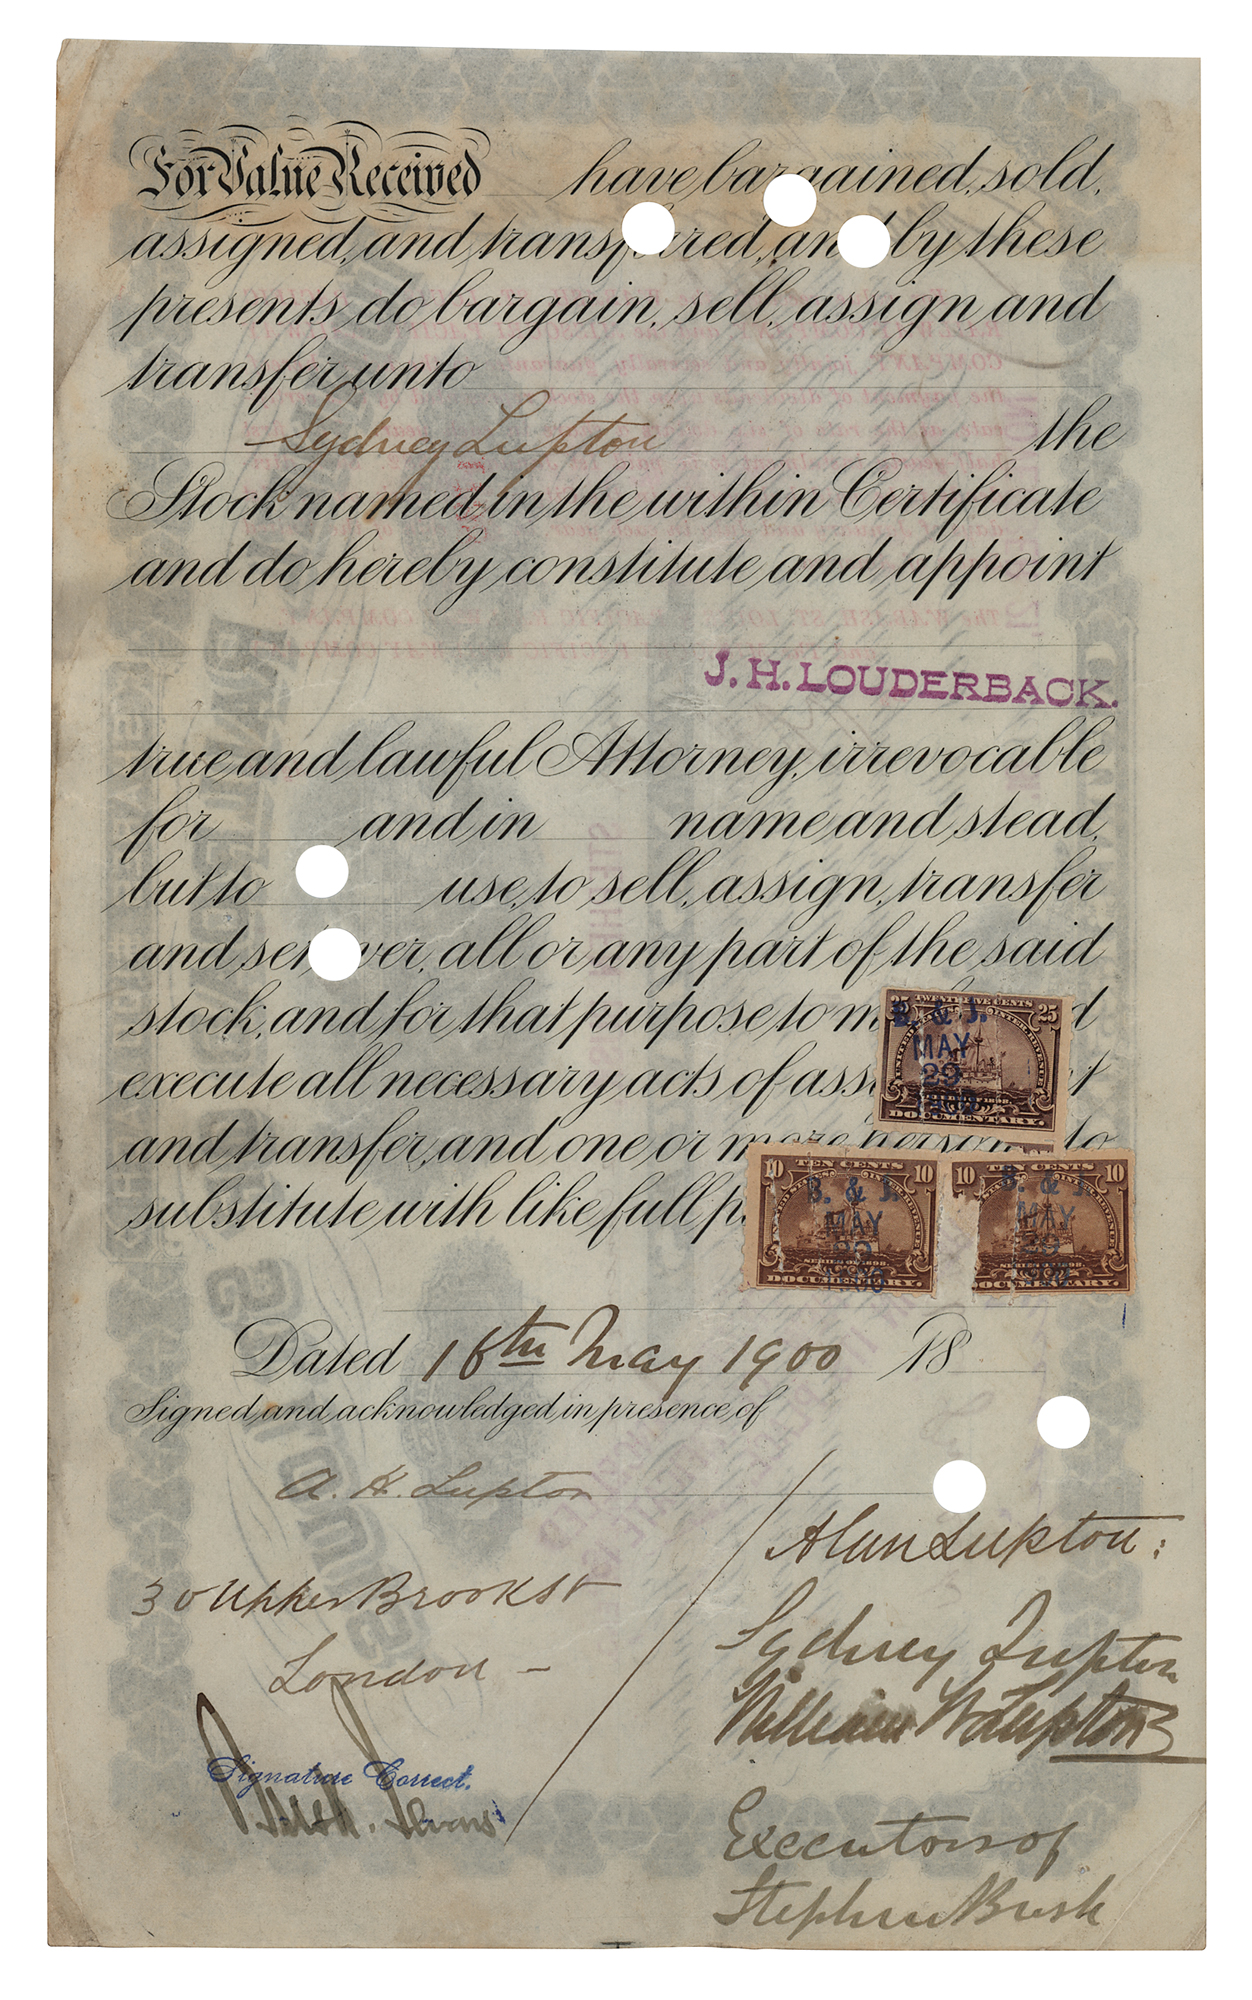 For Value Received have bargained, sold,
assigned, and transferred, and by these
presents do bargain, sell, assign and
transfer unto
Sydney Lupton the
Stock named in the within Certificate
and do hereby constitute and appoint
J. H. LOUDERBACK.
true and lawful Attorney, irrevocable
for and in name and stead,
but to use, to sell, assign, transfer
and set over, all or any part of the said
stock, and for that purpose to
execute all necessary acts of
and transfer, and one or more persons to
substitute with like full
25 TWENTY FIVE CENTS 25
UNITED STATES INTER. REVENUE
SERIES OF 1898.
DOCUMENTARY.
B. & J.
MAY
29
1900
10 TEN CENTS 10
UNITED STATES INTER. REVENUE
SERIES OF 1898.
DOCUMENTARY.
B. & J.
MAY
29
1900
10 TEN CENTS 10
INTER. REVENUE
SERIES OF 1898.
DOCUMENTARY.
B. & J.
MAY
29
1900
Dated 16th May 1900 18
Signed and acknowledged in presence of
A. H. Lupton
30 Upper Brook St
London -
Alan Lupton:
Sydney Lupton
William W Lupton
Signature Correct.
Executors of
Stephen Bush